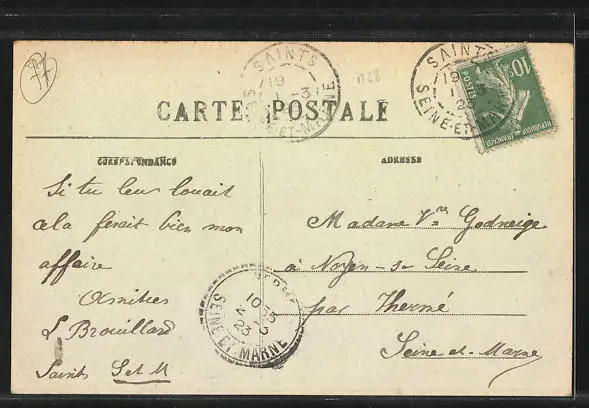 77
SAINTS
19
1 -3
SEINE-ET-MARNE
028
SAINTS
19
1 -3
23
SEINE-ET-MARNE
10c
POSTES
REPUBLIQUE FRANÇAISE
CARTE POSTALE
CORRESPONDANCE
ADRESSE
Si tu leur louait
cela ferait bien mon
affaire
Amitiés
L Brouillard
Saints S et M
Madame Vve Godneige
à Noyen-s-Seine
par Hermé
Seine-et-Marne
HERMÉ
10
23
SEINE-ET-MARNE